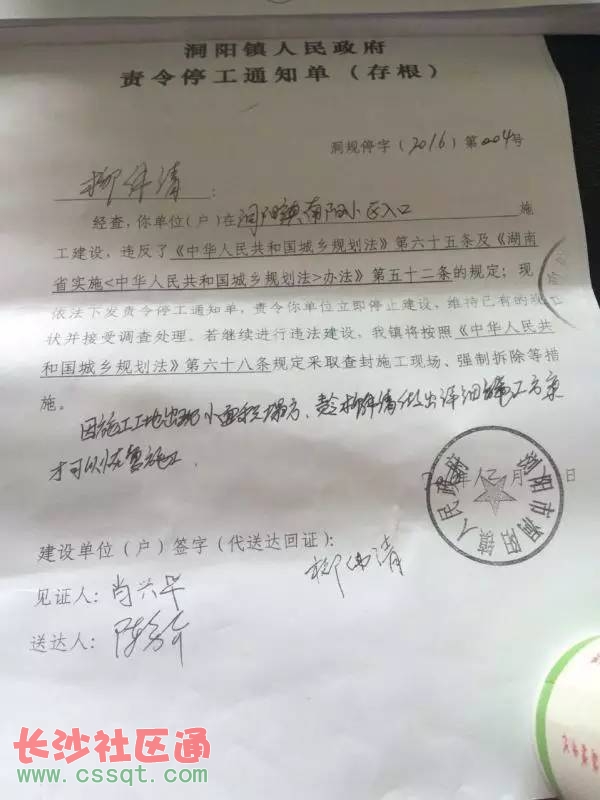 洞阳镇人民政府
责令停工通知单（存根）
洞规停字（2016）第004号
柳伟清：
经查，你单位（户）在洞阳镇南阳小区入口施
工建设，违反了《中华人民共和国城乡规划法》第六十五条及《湖南
省实施<中华人民共和国城乡规划法>办法》第五十二条的规定；现
依法下发责令停工通知单，责令你单位立即停止建设，维持已有的现
状并接受调查处理。若继续进行违法建设，我镇将按照《中华人民共
和国城乡规划法》第六十八条规定采取查封施工现场、强制拆除等措
施。
因施工工地出现小面积塌方，柳伟清做出详细施工方案
才可以恢复施工
年 月 日
浏阳市洞阳镇人民政府
建设单位（户）签字（代送达回证）：
柳伟清
见证人：肖兴华
送达人：陈
长沙社区通
www.cssqt.com